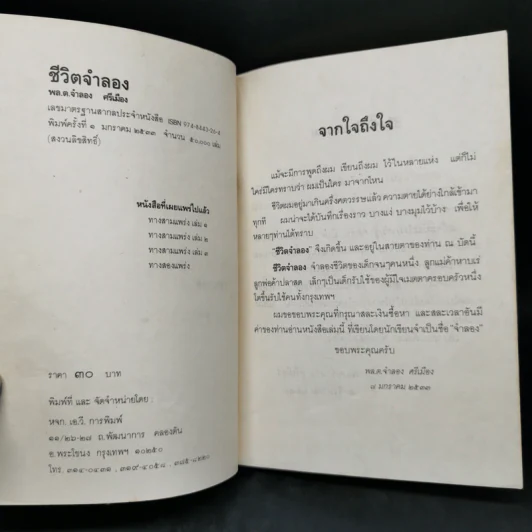 ชีวิตจำลอง
พล.ต.จำลอง ศรีเมือง
เลขมาตรฐานสากลประจำหนังสือ ISBN 974-8443-26-4
พิมพ์ครั้งที่ ๑ มกราคม ๒๕๓๓ จำนวน ๕๐,๐๐๐ เล่ม
(สงวนลิขสิทธิ์)
หนังสือที่เผยแพร่ไปแล้ว
ทางสามแพร่ง เล่ม ๑
ทางสามแพร่ง เล่ม ๒
ทางสามแพร่ง เล่ม ๓
ทางสองแพร่ง
ราคา ๓๐ บาท
พิมพ์ที่ และ จัดจำหน่ายโดย
หจก. เอ.วี. การพิมพ์
๑๑/๒๖-๒๘ ถ.พัฒนาการ คลองตัน
อ.พระโขนง กรุงเทพฯ ๑๐๒๕๐
โทร. ๓๑๔-๐๔๓๑, ๓๑๙-๔๐๕๘, ๓๘๕-๘๒๒๐
จากใจถึงใจ
แม้จะมีการพูดถึงผม เขียนถึงผม ไว้ในหลายแห่ง แต่ก็ไม่
ใคร่มีใครทราบว่า ผมเป็นใคร มาจากไหน
ชีวิตผมอยู่มาเกินครึ่งศตวรรษแล้ว ความตายใต้ย่างใกล้เข้ามา
ทุกที ผมน่าจะได้บันทึกเรื่องราว บางแง่ บางมุมไว้บ้าง เพื่อให้
หลายๆท่านได้ทราบ
"ชีวิตจำลอง" จึงเกิดขึ้น และอยู่ในสายตาของท่าน ณ บัดนี้
ชีวิตจำลอง จำลองชีวิตของเด็กจนๆคนหนึ่ง ลูกแม่ค้าหาบเร่
ลูกพ่อค้าปลาสด เล็กๆเป็นเด็กรับใช้ของผู้มีใจเมตตาครอบครัวหนึ่ง
โตขึ้นรับใช้คนทั้งกรุงเทพฯ
ผมขอขอบพระคุณที่กรุณาสละเงินซื้อหา และสละเวลาอันมี
ค่าของท่านอ่านหนังสือเล่มนี้ ที่เขียนโดยนักเขียนจำเป็นชื่อ "จำลอง"
ขอบพระคุณครับ
พล.ต.จำลอง ศรีเมือง
๘ มกราคม ๒๕๓๓